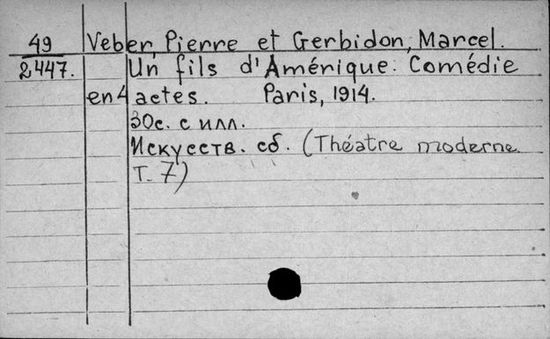 49 Veber, Pierre et Gerbidon, Marcel.
2447. Un fils d'Amérique. Comédie
en 4 actes. Paris, 1914.
30с. с илл.
Искусств. сб. (Théatre moderne
T. 7)